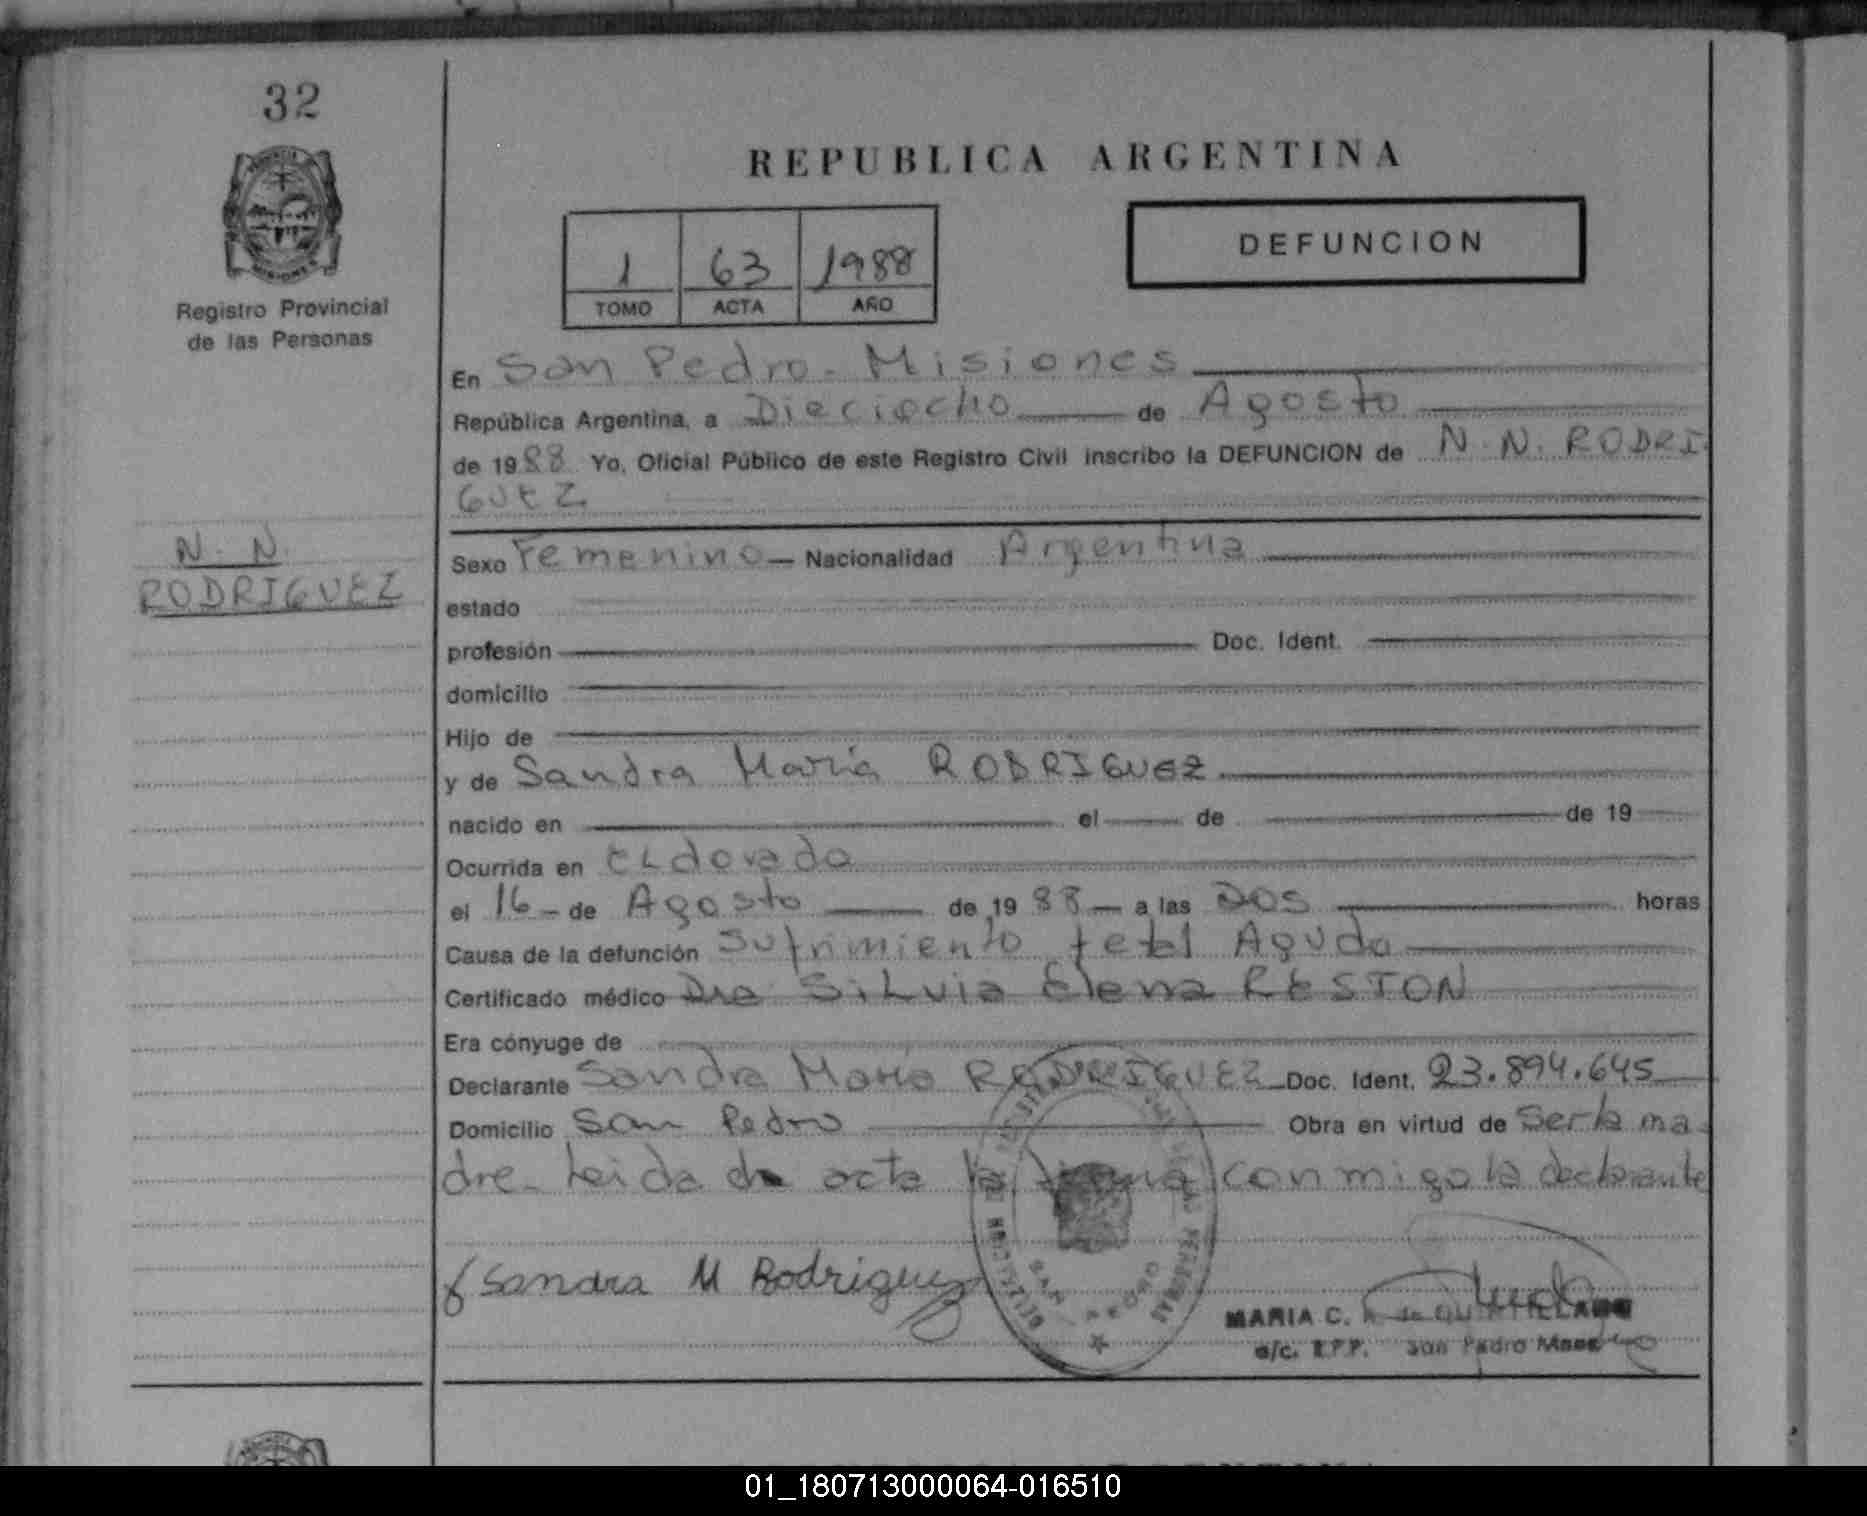 32
REPUBLICA ARGENTINA
DEFUNCION
1 63 1988
TOMO ACTA AÑO
Registro Provincial
de las Personas
En San Pedro - Misiones
República Argentina, a Dieciocho de Agosto
de 1988 Yo, Oficial Público de este Registro Civil inscribo la DEFUNCION de N. N. RODRI-
GUEZ
N. N.
RODRIGUEZ
Sexo Femenino — Nacionalidad Argentina
estado
profesión Doc. Ident.
domicilio
Hijo de
y de Sandra María RODRIGUEZ
nacido en el de de 19
Ocurrida en ELdorado
el 16 - de Agosto de 1988 — a las DOS horas
Causa de la defunción Sufrimiento fetal Agudo
Certificado médico Dra SiLvia Elena RESTON
Era cónyuge de
Declarante Sandra María RODRIGUEZ Doc. Ident. 23.894.645
Domicilio San Pedro Obra en virtud de Ser la ma-
dre - Leida de acta la firma conmigo la declarante
Sandra M Rodriguez
SAN PEDRO
MARIA C. R. de
a/c. R.P.P. San Pedro Mnes
01_180713000064-016510